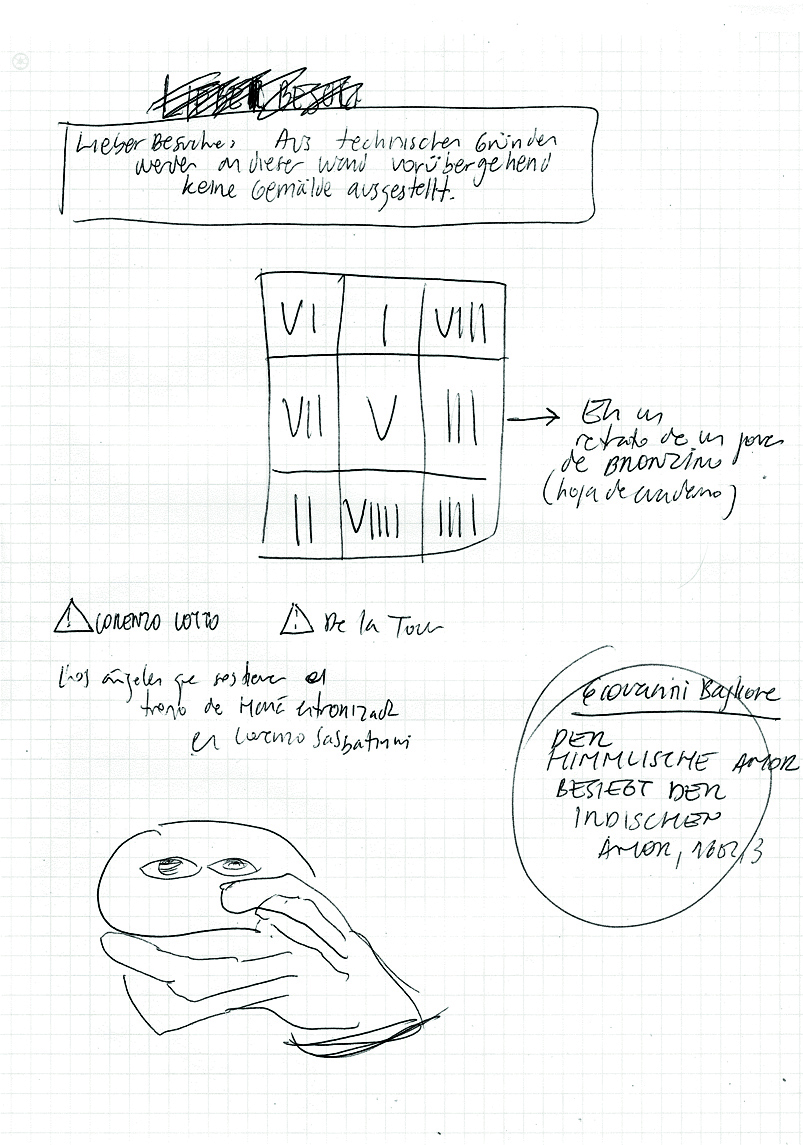 LIEBER BESUCH
Lieber Besucher, Aus technischen Gründen
werden an dieser Wand vorübergehend
keine Gemälde ausgestellt.
VI I VIII
VII V III
II VIIII IIII
En un
retrato de un joven
de BRONZINO
(hoja de cuaderno)
! LORENZO LOTTO ! De la Tour
Los ángeles que sostienen el
trono de María entronizada
en Lorenzo Sabbatini
Giovanni Baglione
DER
HIMMLISCHE AMOR
BESIEGT DEN
IRDISCHEN
AMOR, 1602/3